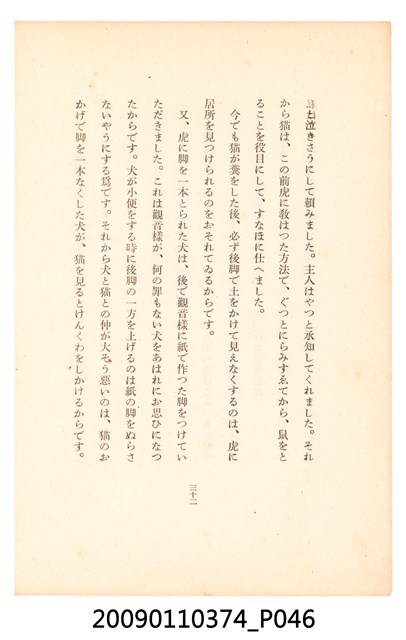 と泣きさうにして頼みました。主人はやつと承知してくれました。それ
から猫は、この前虎に敎はつた方法で、ぐつとにらみすゑてから、鼠をと
ることを役目にして、すなほに仕へました。
今でも猫が糞をした後、必ず後脚で土をかけて見えなくするのは、虎に
居所を見つけられるのをおそれてゐるからです。
又、虎に脚を一本とられた犬は、後で觀音樣に紙で作つた脚をつけてい
ただきました。これは觀音樣が、何の罪もない犬をあはれにお思ひになつ
たからです。犬が小便をする時に後脚の一方を上げるのは紙の脚をぬらさ
ないやうにする爲です。それから犬と猫との仲が大そう惡いのは、猫のお
かげで脚を一本なくした犬が、猫を見るとけんくわをしかけるからです。
三十二
20090110374_P046